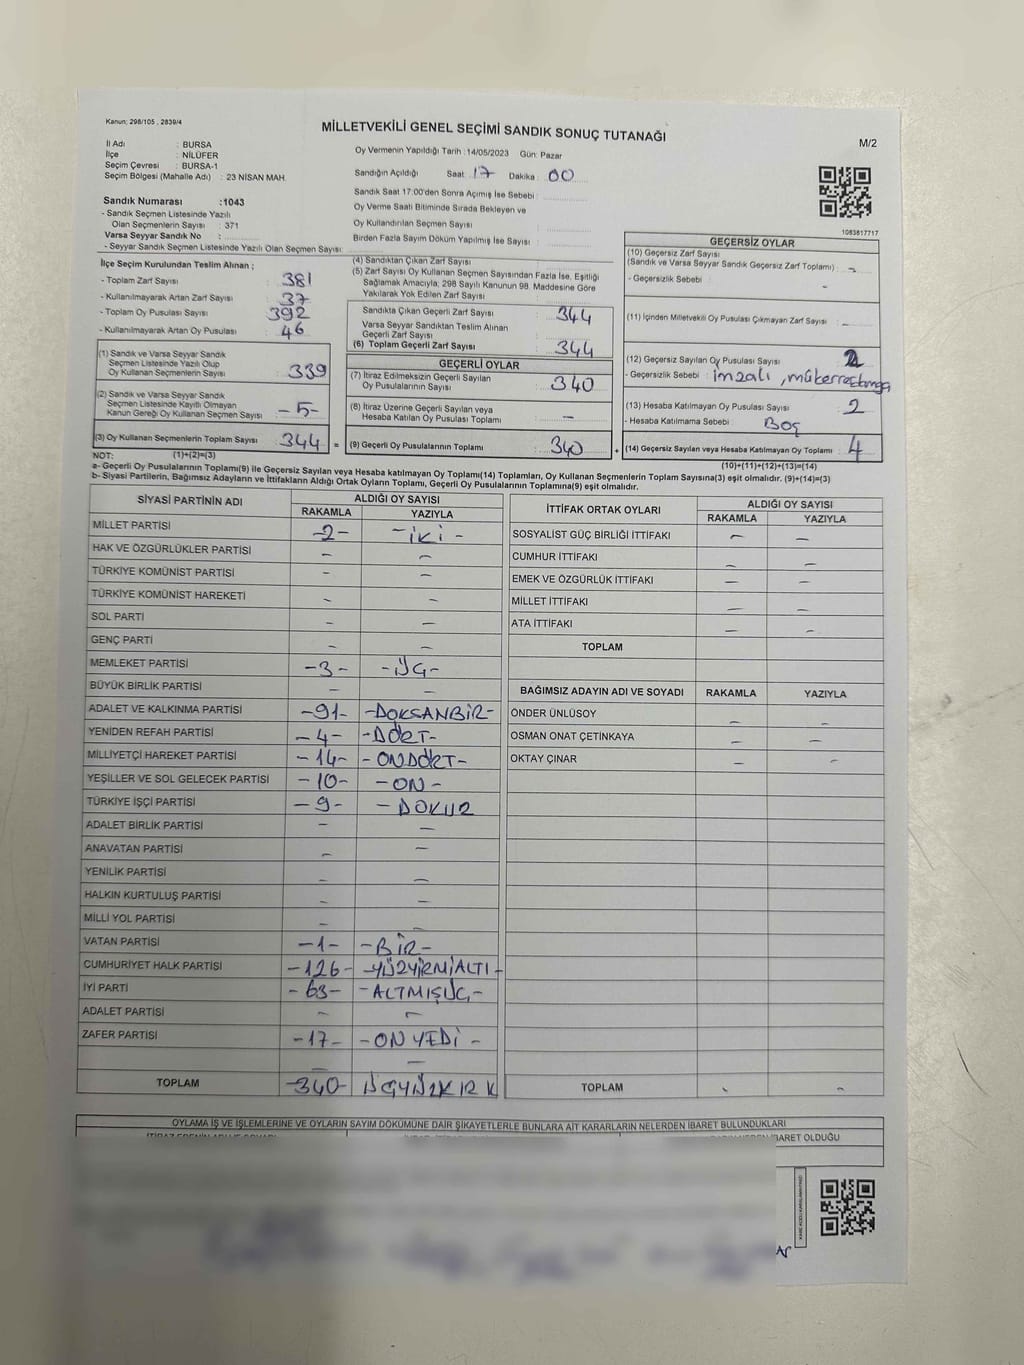 Kanun: 298/105 , 2839/4
MİLLETVEKİLİ GENEL SEÇİMİ SANDIK SONUÇ TUTANAĞI
M/2
İl Adı : BURSA
İlçe : NİLÜFER
Seçim Çevresi : BURSA-1
Seçim Bölgesi (Mahalle Adı) : 23 NİSAN MAH.
Sandık Numarası :1043
- Sandık Seçmen Listesinde Yazılı
Olan Seçmenlerin Sayısı : 371
Varsa Seyyar Sandık No :
- Seyyar Sandık Seçmen Listesinde Yazılı Olan Seçmen Sayısı:
Oy Vermenin Yapıldığı Tarih :14/05/2023 Gün: Pazar
Sandığın Açıldığı Saat 17 Dakika : 00
Sandık Saat 17:00'den Sonra Açımış İse Sebebi :
Oy Verme Saati Bitiminde Sırada Bekleyen ve
Oy Kullandırılan Seçmen Sayısı :
Birden Fazla Sayım Döküm Yapılmış İse Sayısı :
1083817717
İlçe Seçim Kurulundan Teslim Alınan ;
- Toplam Zarf Sayısı : 381
- Kullanılmayarak Artan Zarf Sayısı : 37
- Toplam Oy Pusulası Sayısı : 392
- Kullanılmayarak Artan Oy Pusulası : 46
(1) Sandık ve Varsa Seyyar Sandık
Seçmen Listesinde Yazılı Olup
Oy Kullanan Seçmenlerin Sayısı : 339
(2) Sandık ve Varsa Seyyar Sandık
Seçmen Listesinde Kayıtlı Olmayan
Kanun Gereği Oy Kullanan Seçmen Sayısı : -5-
(3) Oy Kullanan Seçmenlerin Toplam Sayısı : 344 =
(4) Sandıktan Çıkan Zarf Sayısı :
(5) Zarf Sayısı Oy Kullanan Seçmen Sayısından Fazla İse, Eşitliği
Sağlamak Amacıyla, 298 Sayılı Kanunun 98. Maddesine Göre
Yakılarak Yok Edilen Zarf Sayısı :
Sandıkta Çıkan Geçerli Zarf Sayısı : 344
Varsa Seyyar Sandıktan Teslim Alınan
Geçerli Zarf Sayısı :
(6) Toplam Geçerli Zarf Sayısı : 344
GEÇERLİ OYLAR
(7) İtiraz Edilmeksizin Geçerli Sayılan
Oy Pusulalarının Sayısı : 340
(8) İtiraz Üzerine Geçerli Sayılan veya
Hesaba Katılan Oy Pusulası Toplamı : -
(9) Geçerli Oy Pusulalarının Toplamı : 340 +
GEÇERSİZ OYLAR
(10) Geçersiz Zarf Sayısı
(Sandık ve Varsa Seyyar Sandık Geçersiz Zarf Toplamı) : -
- Geçersizlik Sebebi : -
(11) İçinden Milletvekili Oy Pusulası Çıkmayan Zarf Sayısı : -
(12) Geçersiz Sayılan Oy Pusulası Sayısı : 2
- Geçersizlik Sebebi : imzalı,
(13) Hesaba Katılmayan Oy Pusulası Sayısı : 2
- Hesaba Katılmama Sebebi : Boş
(14) Geçersiz Sayılan veya Hesaba Katılmayan Oy Toplamı : 4
NOT: (1)+(2)=(3)
(10)+(11)+(12)+(13)=(14)
a- Geçerli Oy Pusulalarının Toplamı(9) ile Geçersiz Sayılan veya Hesaba katılmayan Oy Toplamı(14) Toplamları, Oy Kullanan Seçmenlerin Toplam Sayısına(3) eşit olmalıdır. (9)+(14)=(3)
b- Siyasi Partilerin, Bağımsız Adayların ve İttifakların Aldığı Ortak Oyların Toplamı, Geçerli Oy Pusulalarının Toplamına(9) eşit olmalıdır.
SİYASİ PARTİNİN ADI ALDIĞI OY SAYISI
RAKAMLA YAZIYLA
MİLLET PARTİSİ -2- -İKİ-
HAK VE ÖZGÜRLÜKLER PARTİSİ - -
TÜRKİYE KOMÜNİST PARTİSİ - -
TÜRKİYE KOMÜNİST HAREKETİ - -
SOL PARTİ - -
GENÇ PARTİ - -
MEMLEKET PARTİSİ -3- -ÜÇ-
BÜYÜK BİRLİK PARTİSİ - -
ADALET VE KALKINMA PARTİSİ -91- -DOKSANBİR-
YENİDEN REFAH PARTİSİ -4- -DÖRT-
MİLLİYETÇİ HAREKET PARTİSİ -14- -ONDÖRT-
YEŞİLLER VE SOL GELECEK PARTİSİ -10- -ON-
TÜRKİYE İŞÇİ PARTİSİ -9- -DOKUZ
ADALET BİRLİK PARTİSİ - -
ANAVATAN PARTİSİ - -
YENİLİK PARTİSİ - -
HALKIN KURTULUŞ PARTİSİ - -
MİLLİ YOL PARTİSİ - -
VATAN PARTİSİ -1- -BİR-
CUMHURİYET HALK PARTİSİ -126- -YÜZYİRMİALTI-
İYİ PARTİ -63- -ALTMIŞÜÇ-
ADALET PARTİSİ - -
ZAFER PARTİSİ -17- -ONYEDİ-
- -
TOPLAM -340- ÜÇYÜZKIRK
İTTİFAK ORTAK OYLARI ALDIĞI OY SAYISI
RAKAMLA YAZIYLA
SOSYALİST GÜÇ BİRLİĞİ İTTİFAKI - -
CUMHUR İTTİFAKI - -
EMEK VE ÖZGÜRLÜK İTTİFAKI - -
MİLLET İTTİFAKI - -
ATA İTTİFAKI - -
TOPLAM
BAĞIMSIZ ADAYIN ADI VE SOYADI RAKAMLA YAZIYLA
ÖNDER ÜNLÜSOY - -
OSMAN ONAT ÇETİNKAYA - -
OKTAY ÇINAR - -
TOPLAM - -
OYLAMA İŞ VE İŞLEMLERİNE VE OYLARIN SAYIM DÖKÜMÜNE DAİR ŞİKAYETLERLE BUNLARA AİT KARARLARIN NELERDEN İBARET BULUNDUKLARI
İBARET OLDUĞU